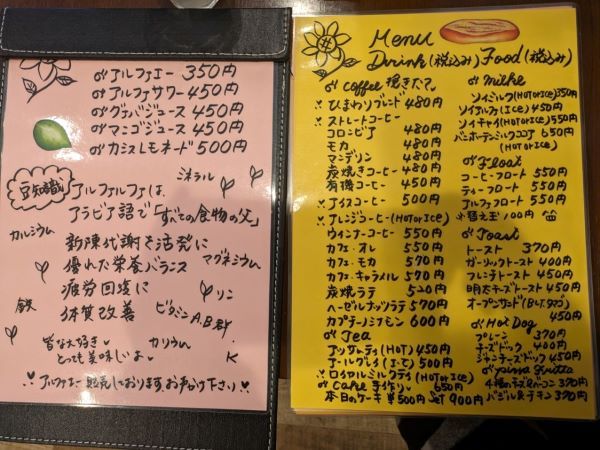 アルファエー 350円
アルファサワー 450円
グァバジュース 450円
マンゴジュース 450円
カシスレモネード 500円
豆知識
アルファルファは、
アラビア語で「すべての食物の父」
ミネラル
カルシウム
新陳代謝を活発に
優れた栄養バランス
マグネシウム
疲労回復に
リン
鉄
体質改善
ビタミンA,B群
皆な大好き
とっても美味しいよ
カリウム
K
アルファエー販売しております。お声がけ下さい
Menu
Drink(税込み)
coffee 挽きたて
ひまわりブレンド 480円
ストレートコーヒー
コロンビア 480円
モカ 480円
マンデリン 480円
炭焼きコーヒー 480円
有機コーヒー 450円
アイスコーヒー 500円
アレンジコーヒー(HOT or ICE)
ウインナーコーヒー 550円
カフェ・オレ 550円
カフェ・モカ 570円
カフェ・キャラメル 570円
炭焼ラテ 520円
ヘーゼルナッツラテ 570円
カプチーノシナモン 600円
Tea
アッサムティ(HOT) 450円
アールグレイ(Ice) 500円
ロイヤルミルクティ(HOT or ICE) 650円
Cake 手作り
本日のケーキ ¥500円 Set 900円
Food(税込み)
milke
ソイミルク(HOT or ICE) 350円
ソイオルレ(ICE) 450円
ソイチャイ(HOT or ICE) 550円
バンホーテンミルクココア 650円
(HOT or ICE)
Float
コーヒーフロート 550円
ティーフロート 550円
アルファフロート 550円
替え玉 100円
Toast
トースト 370円
ガーリックトースト 400円
フレンチトースト 450円
明太チーズトースト 450円
オープンサンド(B.L.T.タマゴ) 450円
Hot Dog
プレーン 370円
チーズドック 400円
ジャンチーズドック 450円
4種のチーズ&ベーコン 370円
バジル&チキン 370円